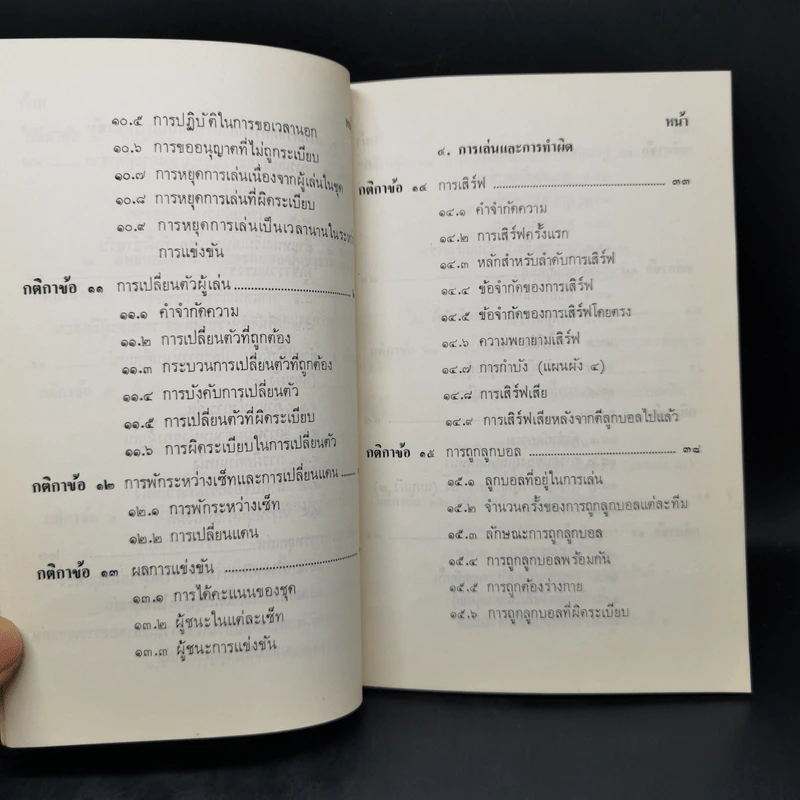 ๑๐.๕ การปฏิบัติในการขอเวลานอก
๑๐.๖ การขออนุญาตที่ไม่ถูกระเบียบ
๑๐.๗ การหยุดการเล่นเนื่องจากผู้เล่นในชุด
๑๐.๘ การหยุดการเล่นที่ผิดระเบียบ
๑๐.๙ การหยุดการเล่นเป็นเวลานานในระหว่าง
การแข่งขัน
กติกาข้อ ๑๑ การเปลี่ยนตัวผู้เล่น
๑๑.๑ คำจำกัดความ
๑๑.๒ การเปลี่ยนตัวที่ถูกต้อง
๑๑.๓ กระบวนการเปลี่ยนตัวที่ถูกต้อง
๑๑.๔ การบังคับการเปลี่ยนตัว
๑๑.๕ การเปลี่ยนตัวที่ผิดระเบียบ
๑๑.๖ การผิดระเบียบในการเปลี่ยนตัว
กติกาข้อ ๑๒ การพักระหว่างเซ็ทและการเปลี่ยนแดน
๑๒.๑ การพักระหว่างเซ็ท
๑๒.๒ การเปลี่ยนแดน
กติกาข้อ ๑๓ ผลการแข่งขัน
๑๓.๑ การได้คะแนนของชุด
๑๓.๒ ผู้ชนะในแต่ละเซ็ท
๑๓.๓ ผู้ชนะการแข่งขัน
หน้า
๔. การเล่นและการทำผิด
กติกาข้อ ๑๔ การเสิร์ฟ ๓๓
๑๔.๑ คำจำกัดความ
๑๔.๒ การเสิร์ฟครั้งแรก
๑๔.๓ หลักสำหรับลำดับการเสิร์ฟ
๑๔.๔ ข้อจำกัดของการเสิร์ฟ
๑๔.๕ ข้อจำกัดของการเสิร์ฟโดยตรง
๑๔.๖ ความพยายามเสิร์ฟ
๑๔.๗ การกำบัง (แผนผัง ๔)
๑๔.๘ การเสิร์ฟเสีย
๑๔.๙ การเสิร์ฟเสียหลังจากตีลูกบอลไปแล้ว
กติกาข้อ ๑๕ การถูกลูกบอล ๓๘
๑๕.๑ ลูกบอลที่อยู่ในการเล่น
๑๕.๒ จำนวนครั้งของการถูกลูกบอลแต่ละทีม
๑๕.๓ ลักษณะการถูกลูกบอล
๑๕.๔ การถูกลูกบอลพร้อมกัน
๑๕.๕ การถูกต้องร่างกาย
๑๕.๖ การถูกลูกบอลที่ผิดระเบียบ